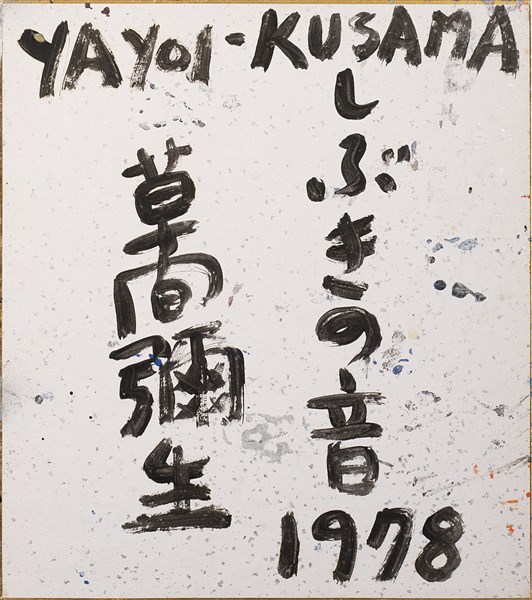 YAYOI-KUSAMA
しぶきの音
1978
草間彌生